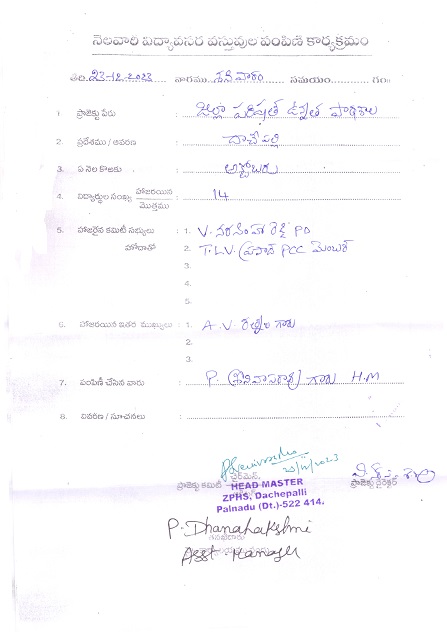 నెలవారి విద్యావసర వస్తువుల పంపిణీ కార్యక్రమం
తేది. 23-12-2023 వారము. శనివారం సమయం గం॥
1. ప్రాజెక్టు పేరు : జిల్లా పరిషత్ ఉన్నత పాఠశాల
2. ప్రదేశము / ఆవరణ : దాచేపల్లి
3. ఏ నెల కొరకు : అక్టోబరు
4. విద్యార్థుల సంఖ్య హాజరయిన : 14
మొత్తము
5. హాజరైన కమిటీ సభ్యులు : 1. V. నరసింహా రెడ్డి PD
హోదాతో 2. T.L.V. ప్రసాద్ PCC మెంబర్
3.
4.
5.
6. హాజరయిన ఇతర ముఖ్యులు : 1. A.V. గారు
2.
3.
7. పంపిణీ చేసిన వారు : P. శ్రీనివాసరావు గారు H.M
8. వివరణ / సూచనలు :
ప్రాజెక్టు కమిటీ ఛైర్మెన్, ప్రాజెక్టు డైరెక్టర్
HEAD MASTER
ZPHS, Dachepalli
Palnadu (Dt.)-522 414.
P. Dhanalakshmi
Asst. Manager